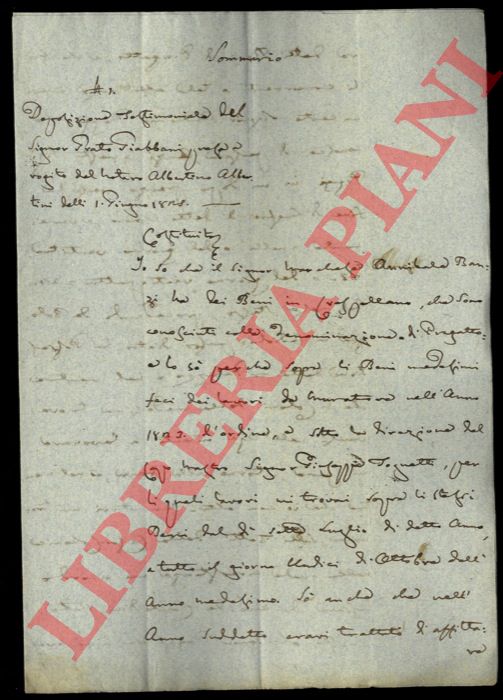 Sommario
# 1.
Deposizione Testimoniale del
Signor Prato Giabbani, presa a
rogito del Notaro Albertino Alber
tini delli 1. Giugno 1825.
Costituito
Io so che il Signor Marchese Annibale Ban
zi ha dei Beni in Crespellano, che sono
conosciute colla denominazione di Pragatto
e lo so perché sopra li Beni medesimi
feci dei lavori da muratore nell'Anno
1823. d'ordine, e sotto la direzione del
Capo mastro Signor Giuseppe Tognetti, per
li quali lavori mi trovai sopra li stessi
Beni dal dì sette Luglio di detto Anno,
a tutto il giorno Undici di Ottobre dell'
Anno medesimo. Sò anche che nell'
Anno suddetto eravi trattato d'affitta-
re
LIBRERIA PIANI